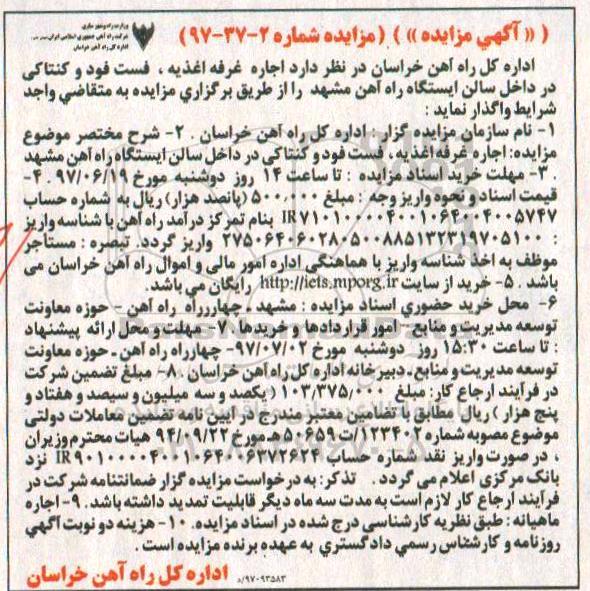 ( « آگهي مزايده » ) ( مزايده شماره ۲-۳۷-۹۷ )
وزارت راه و شهرسازی
شرکت راه آهن جمهوری اسلامی ایران
اداره کل راه آهن خراسان
اداره کل راه آهن خراسان در نظر دارد اجاره غرفه اغذيه ، فست فود و کنتاکی
در داخل سالن ايستگاه راه آهن مشهد را از طريق برگزاري مزايده به متقاضي واجد
شرايط واگذار نمايد :
۱- نام سازمان مزايده گزار : اداره کل راه آهن خراسان . ۲- شرح مختصر موضوع
مزايده: اجاره غرفه اغذيه ، فست فود و کنتاکی در داخل سالن ايستگاه راه آهن مشهد
. ۳- مهلت خريد اسناد مزايده : تا ساعت ۱۴ روز دوشنبه مورخ ۹۷/۰۶/۱۹ . ۴-
قيمت اسناد و نحوه واريز وجه : مبلغ ۵۰۰,۰۰۰ (پانصد هزار) ريال به شماره حساب
IR۷۱۰۱۰۰۰۰۴۰۰۱۰۶۴۰۰۴۰۰۵۷۴۷ بنام تمرکز درآمد راه آهن با شناسه واريز
: ۲۷۵۰۶۴۰۶۰۲۸۰۵۰۰۸۸۵۱۳۲۳۱۹۷۰۵۱۰۰ واريز گردد. تبصره : مستاجر
موظف به اخذ شناسه واريز با هماهنگي اداره امور مالی و اموال راه آهن خراسان می
باشد . ۵- خريد از سايت http://iets.mporg.ir رايگان می باشد.
۶- محل خريد حضوري اسناد مزايده : مشهد ـ چهارراه راه آهن - حوزه معاونت
توسعه مديريت و منابع - امور قراردادها و خريدها . ۷- مهلت و محل ارائه پيشنهاد
: تا ساعت ۱۵:۳۰ روز دوشنبه مورخ ۹۷/۰۷/۰۲- چهارراه راه آهن ـ حوزه معاونت
توسعه مديريت و منابع ـ دبيرخانه اداره کل راه آهن خراسان . ۸- مبلغ تضمين شرکت
در فرآيند ارجاع کار: مبلغ ۱۰۳,۳۷۵,۰۰۰ ( يکصد و سه ميليون و سيصد و هفتاد و
پنج هزار ) ريال مطابق با تضامين معتبر مندرج در آيين نامه تضمين معاملات دولتی
موضوع مصوبه شماره ۱۲۳۴۰۲/ت۵۰۶۵۹هـ مورخ ۹۴/۰۹/۲۲ هيات محترم وزيران
، در صورت واريز نقد شماره حساب IR۹۰۱۰۰۰۰۴۰۰۱۰۶۴۰۰۶۳۷۲۶۲۴ نزد
بانک مرکزي اعلام می گردد . تذکر: به درخواست مزايده گزار ضمانتنامه شرکت در
فرآيند ارجاع کار لازم است به مدت سه ماه ديگر قابليت تمديد داشته باشد . ۹- اجاره
ماهيانه : طبق نظريه کارشناسی درج شده در اسناد مزايده . ۱۰- هزينه دو نوبت آگهي
روزنامه و کارشناس رسمي دادگستري به عهده برنده مزايده است .
اداره کل راه آهن خراسان
۹۷۰۹۳۵۸۳/د